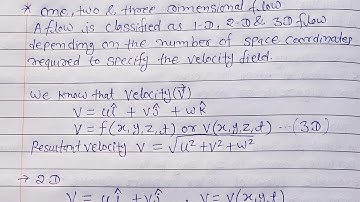 * One, two & three Dimensional flow
A flow is classified as 1-D, 2-D & 3D flow
depending on the number of space coordinates
required to specify the velocity field.
We know that Velocity (V⃗)
V = uî + vĵ + wk̂
V = f(x,y,z,t) or V(x,y,z,t) --- (3.D)
Resultent velocity V = √u²+v²+w²
→ 2D
V = uî + vĵ , V = V(x,y,t)